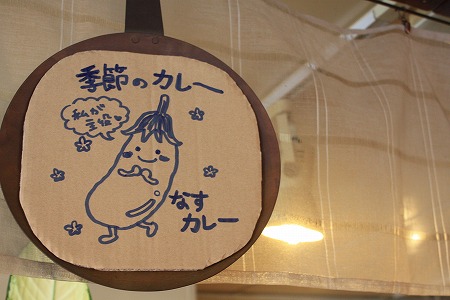 季節のカレー
私が
主役♥
なす
カレー